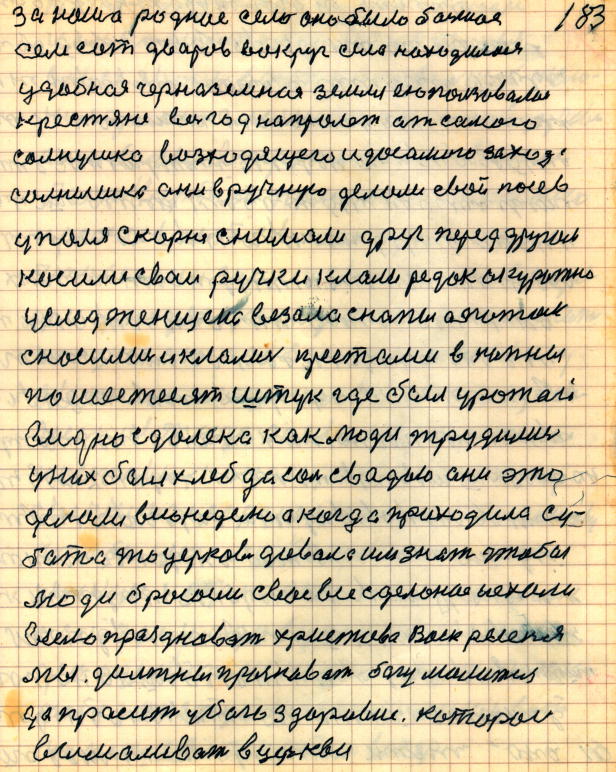 183
за наша родное село оно было болшое
сем сот дваров вокруг села находилася
удобная черназемная земля ею ползовалис
крестяне вез год напролет ат самого
солнушка возходящего и досамого заход.
солнышка они вручную делоли свой посев
у поля скорня снимали друг перед другом
косили сваи ручки клали редок акуратно
услед женщена везала снапы а потом
сносили и клалиу крестами в копны
по шестесят штук где был урожай
видно сдолека как люди трудилис
у них был хлеб да сол с вадою они это
делоли вию неделю а когда приходила су-
бата то церков довала им знат чтобы
люди бросали свое все сделоное ыехали
в село праздноват христова Воскресенея
мы. должны празноват богу молитися
да прасит у бога здаровие. которои
вымаливат в церкви